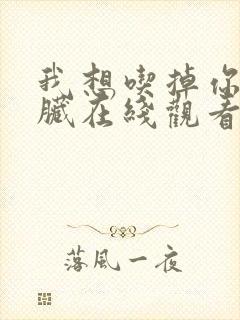 我想喫掉你
臟在綫觀看
落風一夜